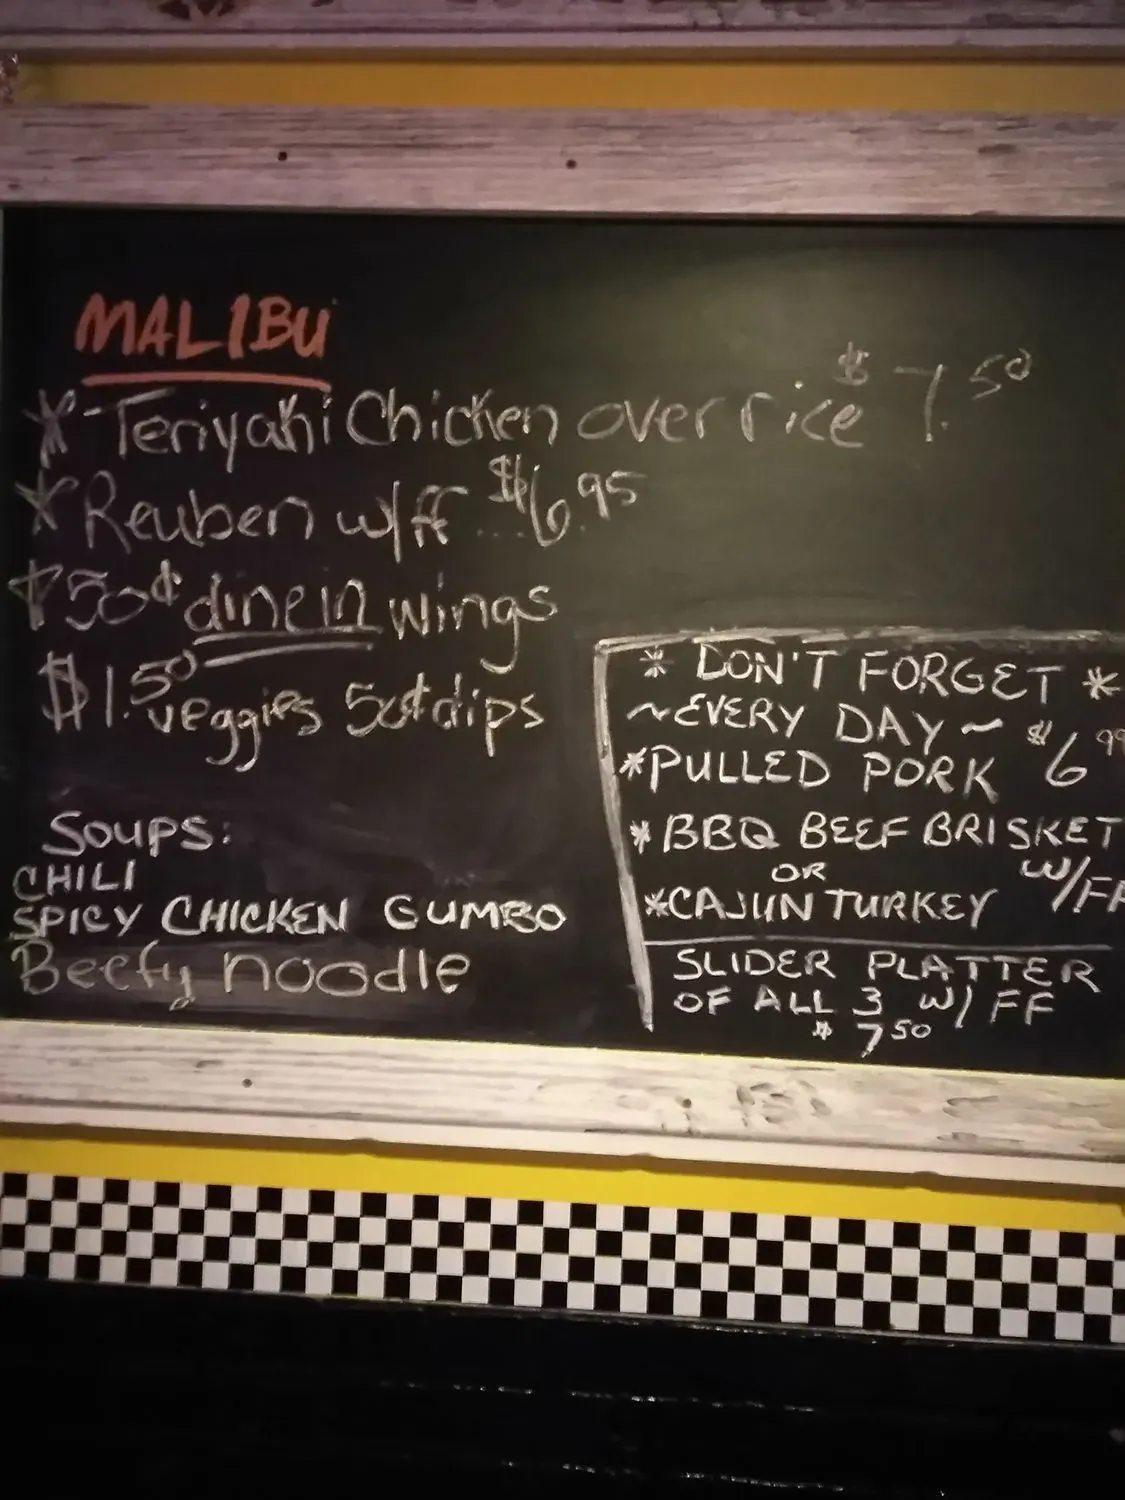 MALIBU
* Teriyaki Chicken over rice $7.50
* Reuben w/ff ... $6.95
* 50¢ dine in wings
$1.50 veggies 50¢ dips
Soups:
CHILI
SPICY CHICKEN GUMBO
Beefy noodle
* DON'T FORGET *
~EVERY DAY~ $6.99
*PULLED PORK
*BBQ BEEF BRISKET
OR W/FF
*CAJUN TURKEY
SLIDER PLATTER
OF ALL 3 W/ FF
$7.50